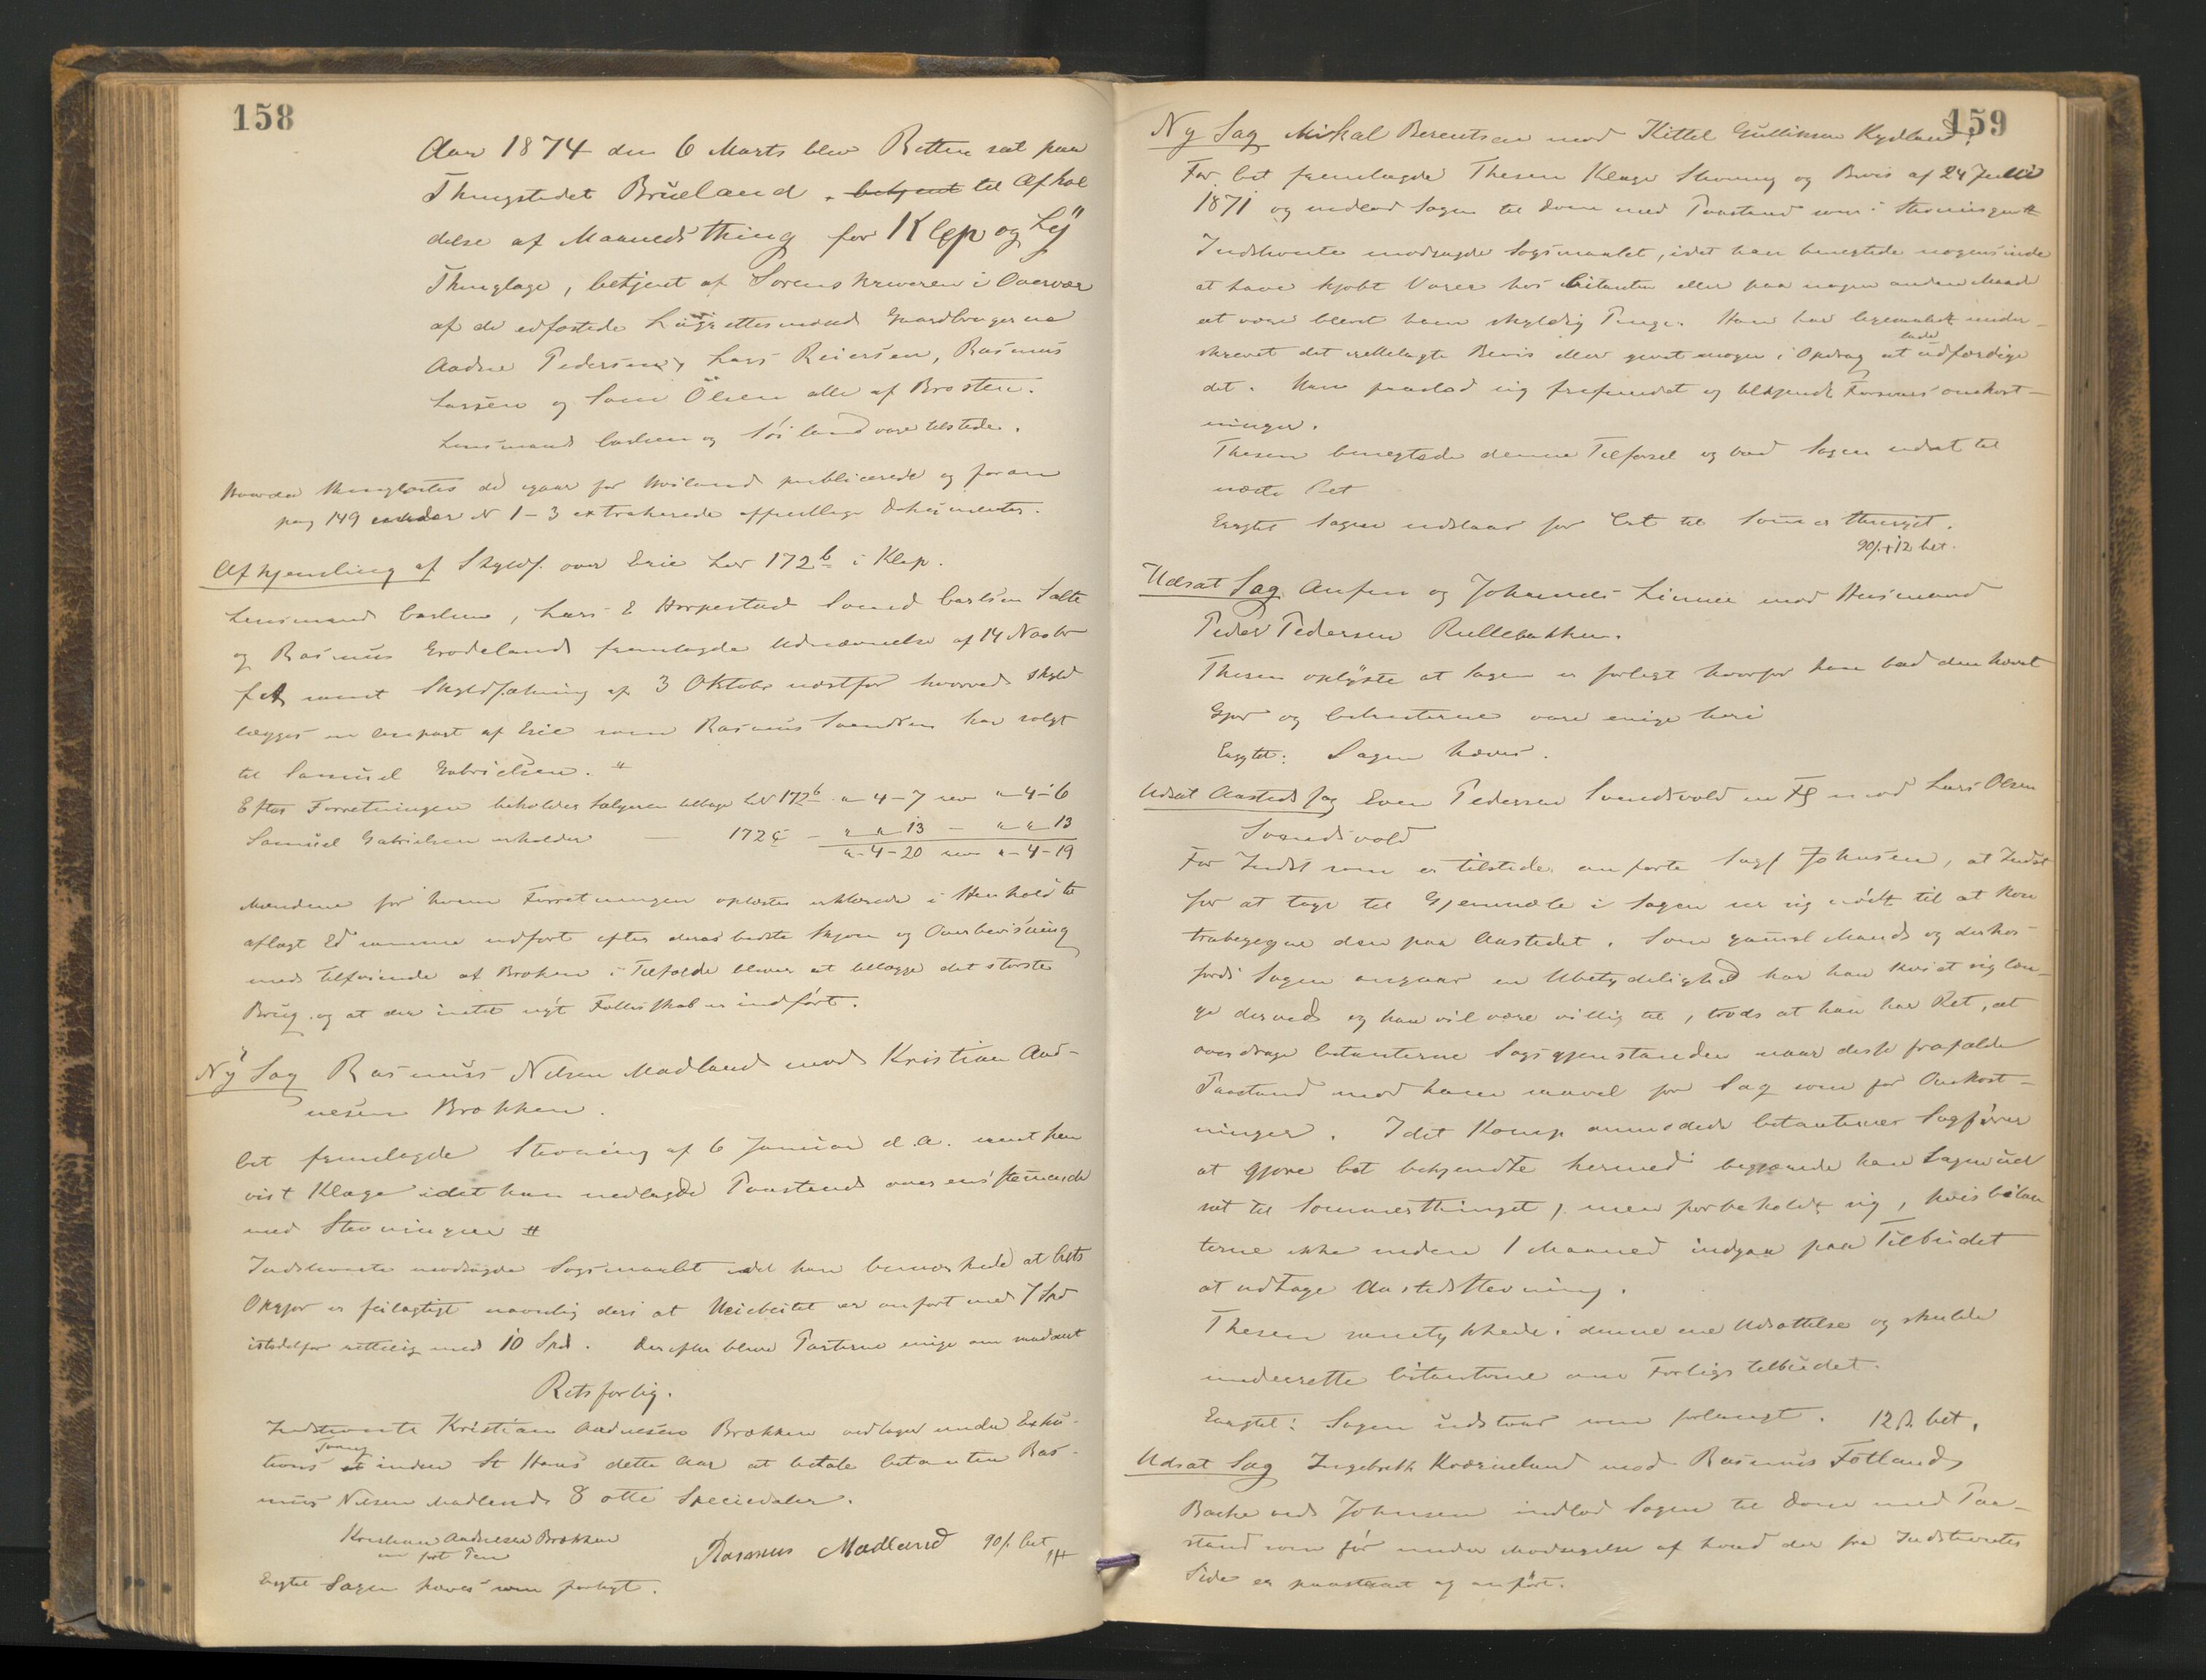 158
Aar 1874 den 6 Marts blev Retten sat paa
Thingstedet Brueland . betjent til Afhol
delse af Maanedsthing for Klep og Lÿ
Thinglage, betjent af Sorenskriveren i Overvær
af de edfæstede Laugrettesmænd Gaardbrugerne
Aadne Pedersen, Lars Reiersen, Rasmus
Larsen og Olsen alle af Brosten.
Lensmænd og Søiland vare tilstede.
de igaar for publicerede og foran
pag 149 under N 1-3 extraherede offentlige Dokumenter.
Afhjemling af Skyldf. over Erie Lnr 172b i Klep.
Lensmand , Lars E Horpestad Salte
og Rasmus Erodeland fremlagde Udnævnelse af 14 Novbr
f A samt Skyldsætning af 3 Oktobr næstfør hvorved skyld
lægges en Anpart af Erie som Rasmus Svendsen har solgt
til Samuel Gabrielsen. #
Efter Forretningen beholder Sælgeren tilbage LN 172b " 4-7 rev " 4-6
Samuel Gabrielsen erholder — 172c - " " 13 — " " 13
" - 4 - 20 rev " - 4 - 19
Mændene for hvem Forretningen oplæstes erklærede i Henhold til
aflagt Ed samme udført efter deres bedste Skjøn og Overbevisning
med Tilføiende at Brøken i Tilfælde bliver at tillægge det største
Brug og at der intet nyt Fællesskab er indført.
Ny Sag Rasmus Nilsen Madland mod Kristian Aad-
nesen Brækken.
Cit fremlagde Stevning af 6 Januar d.A. samt hen
vist Klage idet han nedlagde Paastand overensstemmende
med Stevningen #
Indstevnte modsagde Sagsmaalet idet han bemærkede at Cits
Opgjør er feilagtigt navnlig deri at er anført med 7 Spd
istedetfor rettelig med 10 Spd. Derefter bleve Parterne enige om saadant
Retsforlig.
Indstevnte Kristian Aadnesen Brækken vedtager under Exku-
tions Tvang at inden St Hans dette Aar at betale Citanten Ras-
mus Nilsen Madland 8 otte Speciedaler.
Kristian Aadnesen Brækken
m ført Pen
Rasmus Madland 90/. bet
Eragtet Sagen hæves som forligt.
159
Ny Sag Mikal Berentsen mod Kittel Gullikson Kydland.
For Cit fremlagde Thesen Klage Stevning og Bevis af 24 Juli
1871 og indlod Sagen til Doms med Paastand som i Stevningen #
Indstevnte modsagde Sagsmaalet, idet han benegtede nogensinde
at have kjøbt Varer hos Citanten eller paa nogen anden Maade
at være blevet ham skyldig Penge. Han har ligesaalidt under-
skrevet det irettelagte Bevis eller givet nogen i Opdrag at lade udfærdige
det. Han paastod sig frifunden og tilkjendt Processens omkost-
ninger.
Thesen benegtede denne Tilførsel og bad Sagen udsat til
næste Ret
Eragtet Sagen udstaar for Cit til Sommerthinget.
90/.+12 bet.
Udsat Sag Anfin og Johannes Linnie mod Husmand
Peder Pedersen Rullebakken.
Thesen oplyste at Sagen er forligt hvorfor han bad den hævet
Gjør og Citanterne vare enige heri
Eragtet: Sagen hæves.
Udsat Aasteds Sag Even Pedersen Svendsvold m Fl mod Lars Olsen
Svendsvold
For Indst som er tilstede anførte Sagf Johnsen, at Indst
for at tage til Gjenmæle i Sagen ser sig nødt til at kon
trabegegne den paa Aastedet. Som gammel Mand og derhos
fordi Sagen angaar en Ubetydelighed har han kviet sig læn-
ge derved og han vil være villig til, trods at han har Ret, at
overdrage Citanterne Sagsgjenstanden naar disse frafalde
Paastand mod ham saavel for Sag som for Omkost-
ninger. Idet Komp anmodede Citanternes Sagfører
at gjøre Cit bekjendte hermed begjærede han Sagen ud
sat til Sommerthinget, men forbeholdt sig, hvis Citan
terne ikke inden 1 Maaned indgaa paa Tilbudet
at udtage Aastedsstevning.
Thesen samtykkede i denne ene Udsættelse og skulde
underrette Citanterne om Forligs tilbudet.
Eragtet: Sagen udstaar som forlangt. 12 ß bet.
Udsat Sag Ingebreth Kværneland mod Rasmus Fotland,
Backe ved Johnsen indlod Sagen til Doms med Paa-
stand som før under Modsigelse af hvad der fra Indstevntes
Side er paastaaet og anført.